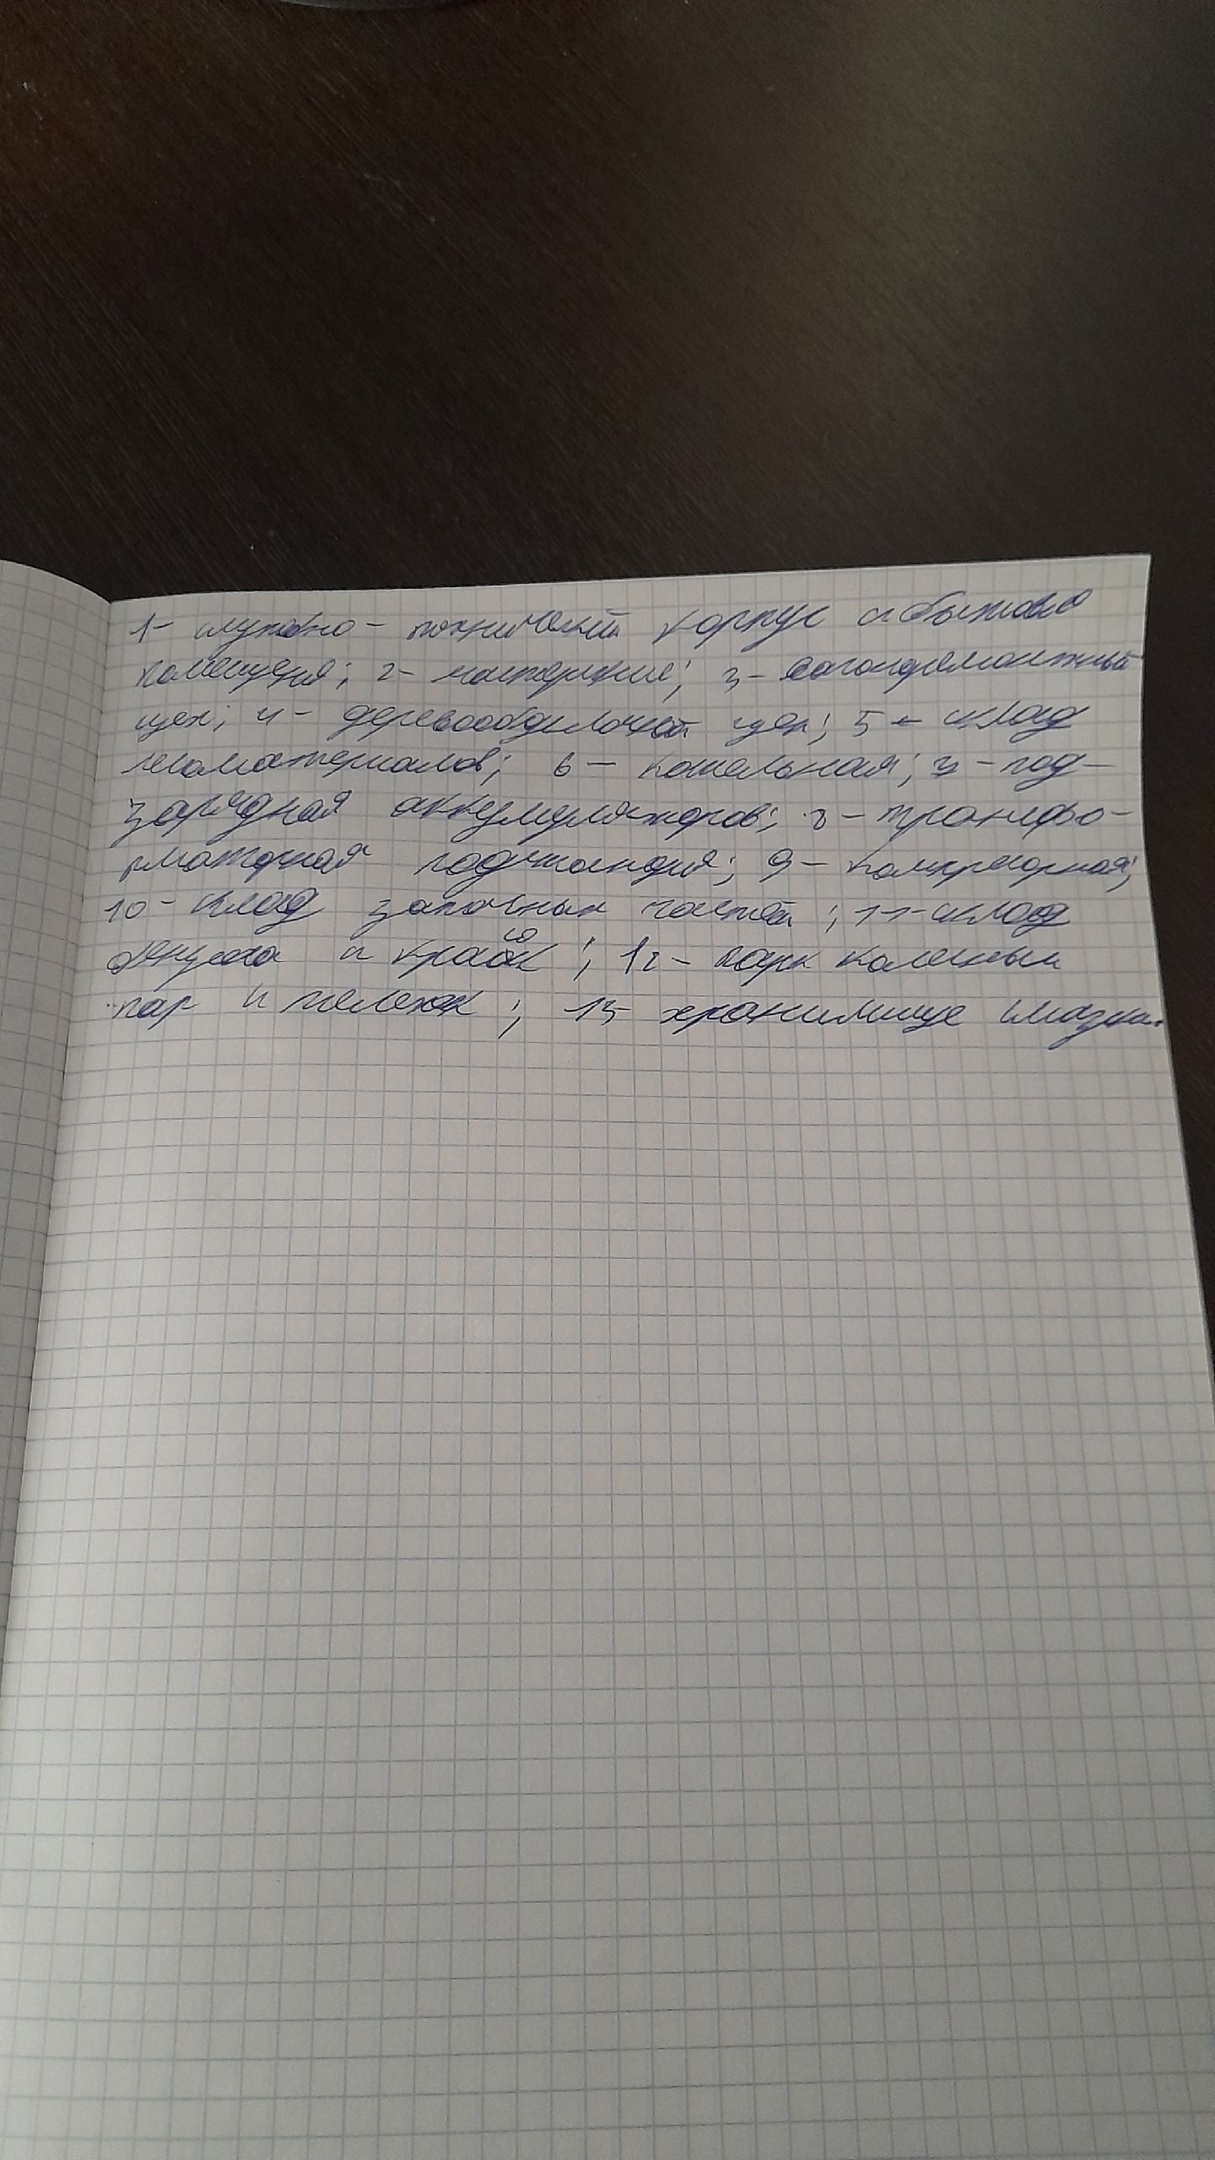 1- служебно - технический корпус и бытовые
помещения; 2- мастерские; 3- вагоноремонтный
цех; 4- деревообделочной цех; 5 - склад
лесоматериалов; 6 - котельная; 7 - под-
зарядная аккумуляторов; 8 - трансфо-
рматорная подстанция; 9 - компрессорная;
10 - склад запасных частей; 11-склад
и красок; 12 - парк колесных
пар и тележек; 13 хранилище смазки.